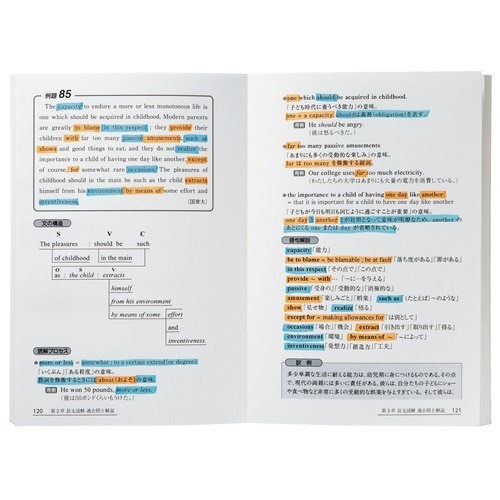 例題 85
The capacity to endure a more or less monotonous life is
one which should be acquired in childhood. Modern parents
are greatly to blame in this respect ; they provide their
children with far too many passive amusements, such as
shows and good things to eat, and they do not realize the
importance to a child of having one day like another, except
of course, for somewhat rare occasions. The pleasures of
childhood should in the main be such as the child extracts
himself from his environment by means of some effort and
inventiveness.
文の構造
S V C
The pleasures : should be such
of childhood in the main
O S V
as : the child : extracts
himself
from his environment
by means of some effort
and
inventiveness.
読解プロセス
more or less = somewhat ; to a certain extend(or degree)
「いくぶん」「ある程度」の意味。
数詞を修飾するときには about (およそ)の意味。
He won 50 pounds, more or less.
(彼は50ポンドくらいもうけた。)
120 第3章 長文読解 過去問と解説
one which should be acquired in childhood.
「子ども時代に養うべき能力」の意味。
one = a capacity shouldは義務(obligation)を表す。
He should be angry.
(彼は怒るべきだ。)
far too many passive amusements
「あまりにも多くの受動的な楽しみ」の意味。
far は too many を修飾する副詞。
Our college uses far too much electricity.
(わたしたちの大学はあまりにも大量の電力を消費している。)
the importance to a child of having one day like another
= that it is important for a child to have one day like another
「子どもが今日も明日も同じように過ごすことが重要」の意味。
one day と another が対照関係となって意味が明瞭なため、another の
あとにくる one または day が省略されている。
語句解説
capacity「能力」
to blame = to be blamable ; be at fault「落ち度がある」「罪がある」
in this respect「その点で」「この点で」
provide ～ with …「～に…を与える」
passive「受身の」「受動的な」「消極的な」
amusement「楽しみごと」「娯楽」 such as「(たとえば)～のような」
show「見せ物」 realize「悟る」
except for = making allowances for「は別として」
occasions「場合」「機会」 extract「引き出す」「取り出す」「得る」
environment「環境」 by means of ～「～によって」
inventiveness「発想力」「創造力」「工夫」
訳例
多少単調な生活に耐える能力は、幼児期に身につけるものである。その点
で、現代の両親には多いに責任がある。彼らは、自分たちの子どもにショー
や食べ物など非常に多くの受動的な娯楽を与えすぎている。そして彼らは、
第3章 長文読解 過去問と解説 121